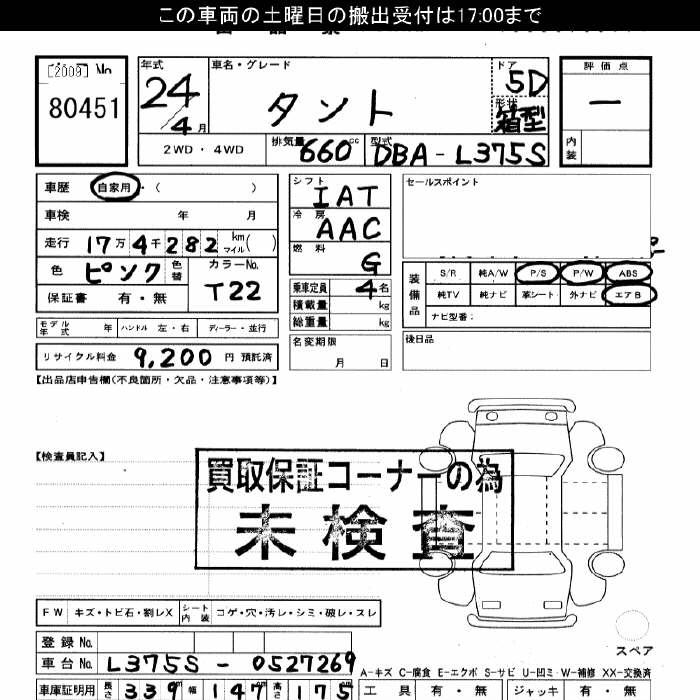 この車両の土曜日の搬出受付は17:00まで
[2009] No
80451
年式 車名・グレード ドア 評価点
24 タント 5D
4月 形状 箱型 一
2WD・4WD 排気量 660cc 型式 DBA-L375S 内装
車歴 自家用・( ) シフト IAT セールスポイント
車検 年 月 冷房 AAC
走行 17万4千282 km マイル( ) 燃料 G
色 ピンク 色替 カラーNo. T22
保証書 有・無
乗車定員 4名
積載量 kg
総重量 kg
装備品 S/R 純A/W P/S P/W ABS
純TV 純ナビ 革シート 外ナビ エアB
ナビ型番:
モデル年式 年 ハンドル 左・右 ディーラー・並行
名変期限 月 日
後日品
リサイクル料金 9,200 円 預託済
【出品店申告欄(不良箇所・欠品・注意事項等)】
【検査員記入】
買取保証コーナーの為
未検査
FW キズ・トビ石・割レX シート内装 コゲ・穴・汚レ・シミ・破レ・スレ
スペア
登録No.
車台No. L375S-0527269
A-キズ C-腐食 E-エクボ S-サビ U-凹ミ W-補修 XX-交換済
車庫証明用 長さ 339 幅 147 高さ 175
工具 有・無 ジャッキ 有・無